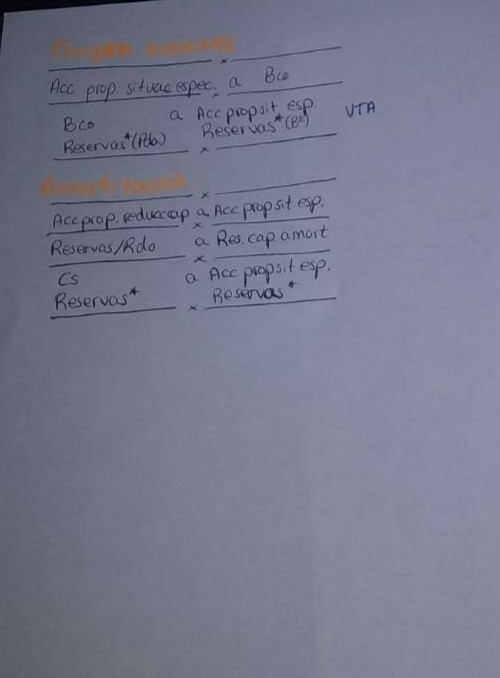 Acc prop. situac espec. a Bco
Bco a Acc prop sit esp.
Reservas* (Pda) Reservas* (Bº) VTA
Acc prop. reducc cap a Acc prop sit esp.
Reservas/Rdo a Res. cap. amort
Cs a Acc prop sit esp.
Reservas* Reservas*